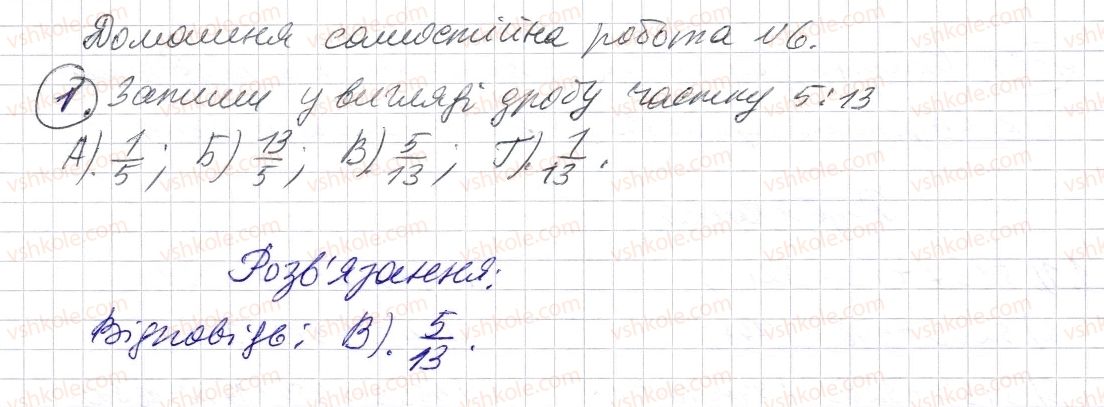 Домашня самостійна робота №6.
1. Запиши у вигляді дробу частку 5:13
А). 1/5; Б) 13/5; В). 5/13; Г). 1/13.
Розв'язання:
Відповідь: В). 5/13.